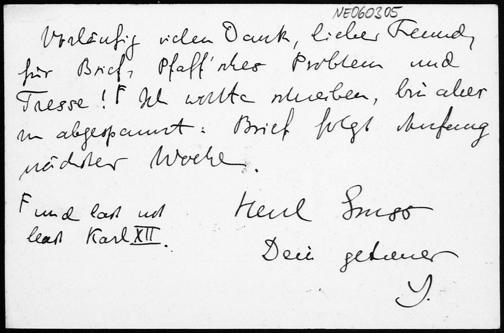 NE060305
Vorläufig vielen Dank, lieber Freund,
für Brief, Pfaff'sches Problem und
Tresse! F Ich wollte schreiben, bin aber
zu abgespannt. Brief folgt Anfang
nächster Woche.
F und last not
least Karl XII.
Herzl Gruss
Dein getreuer